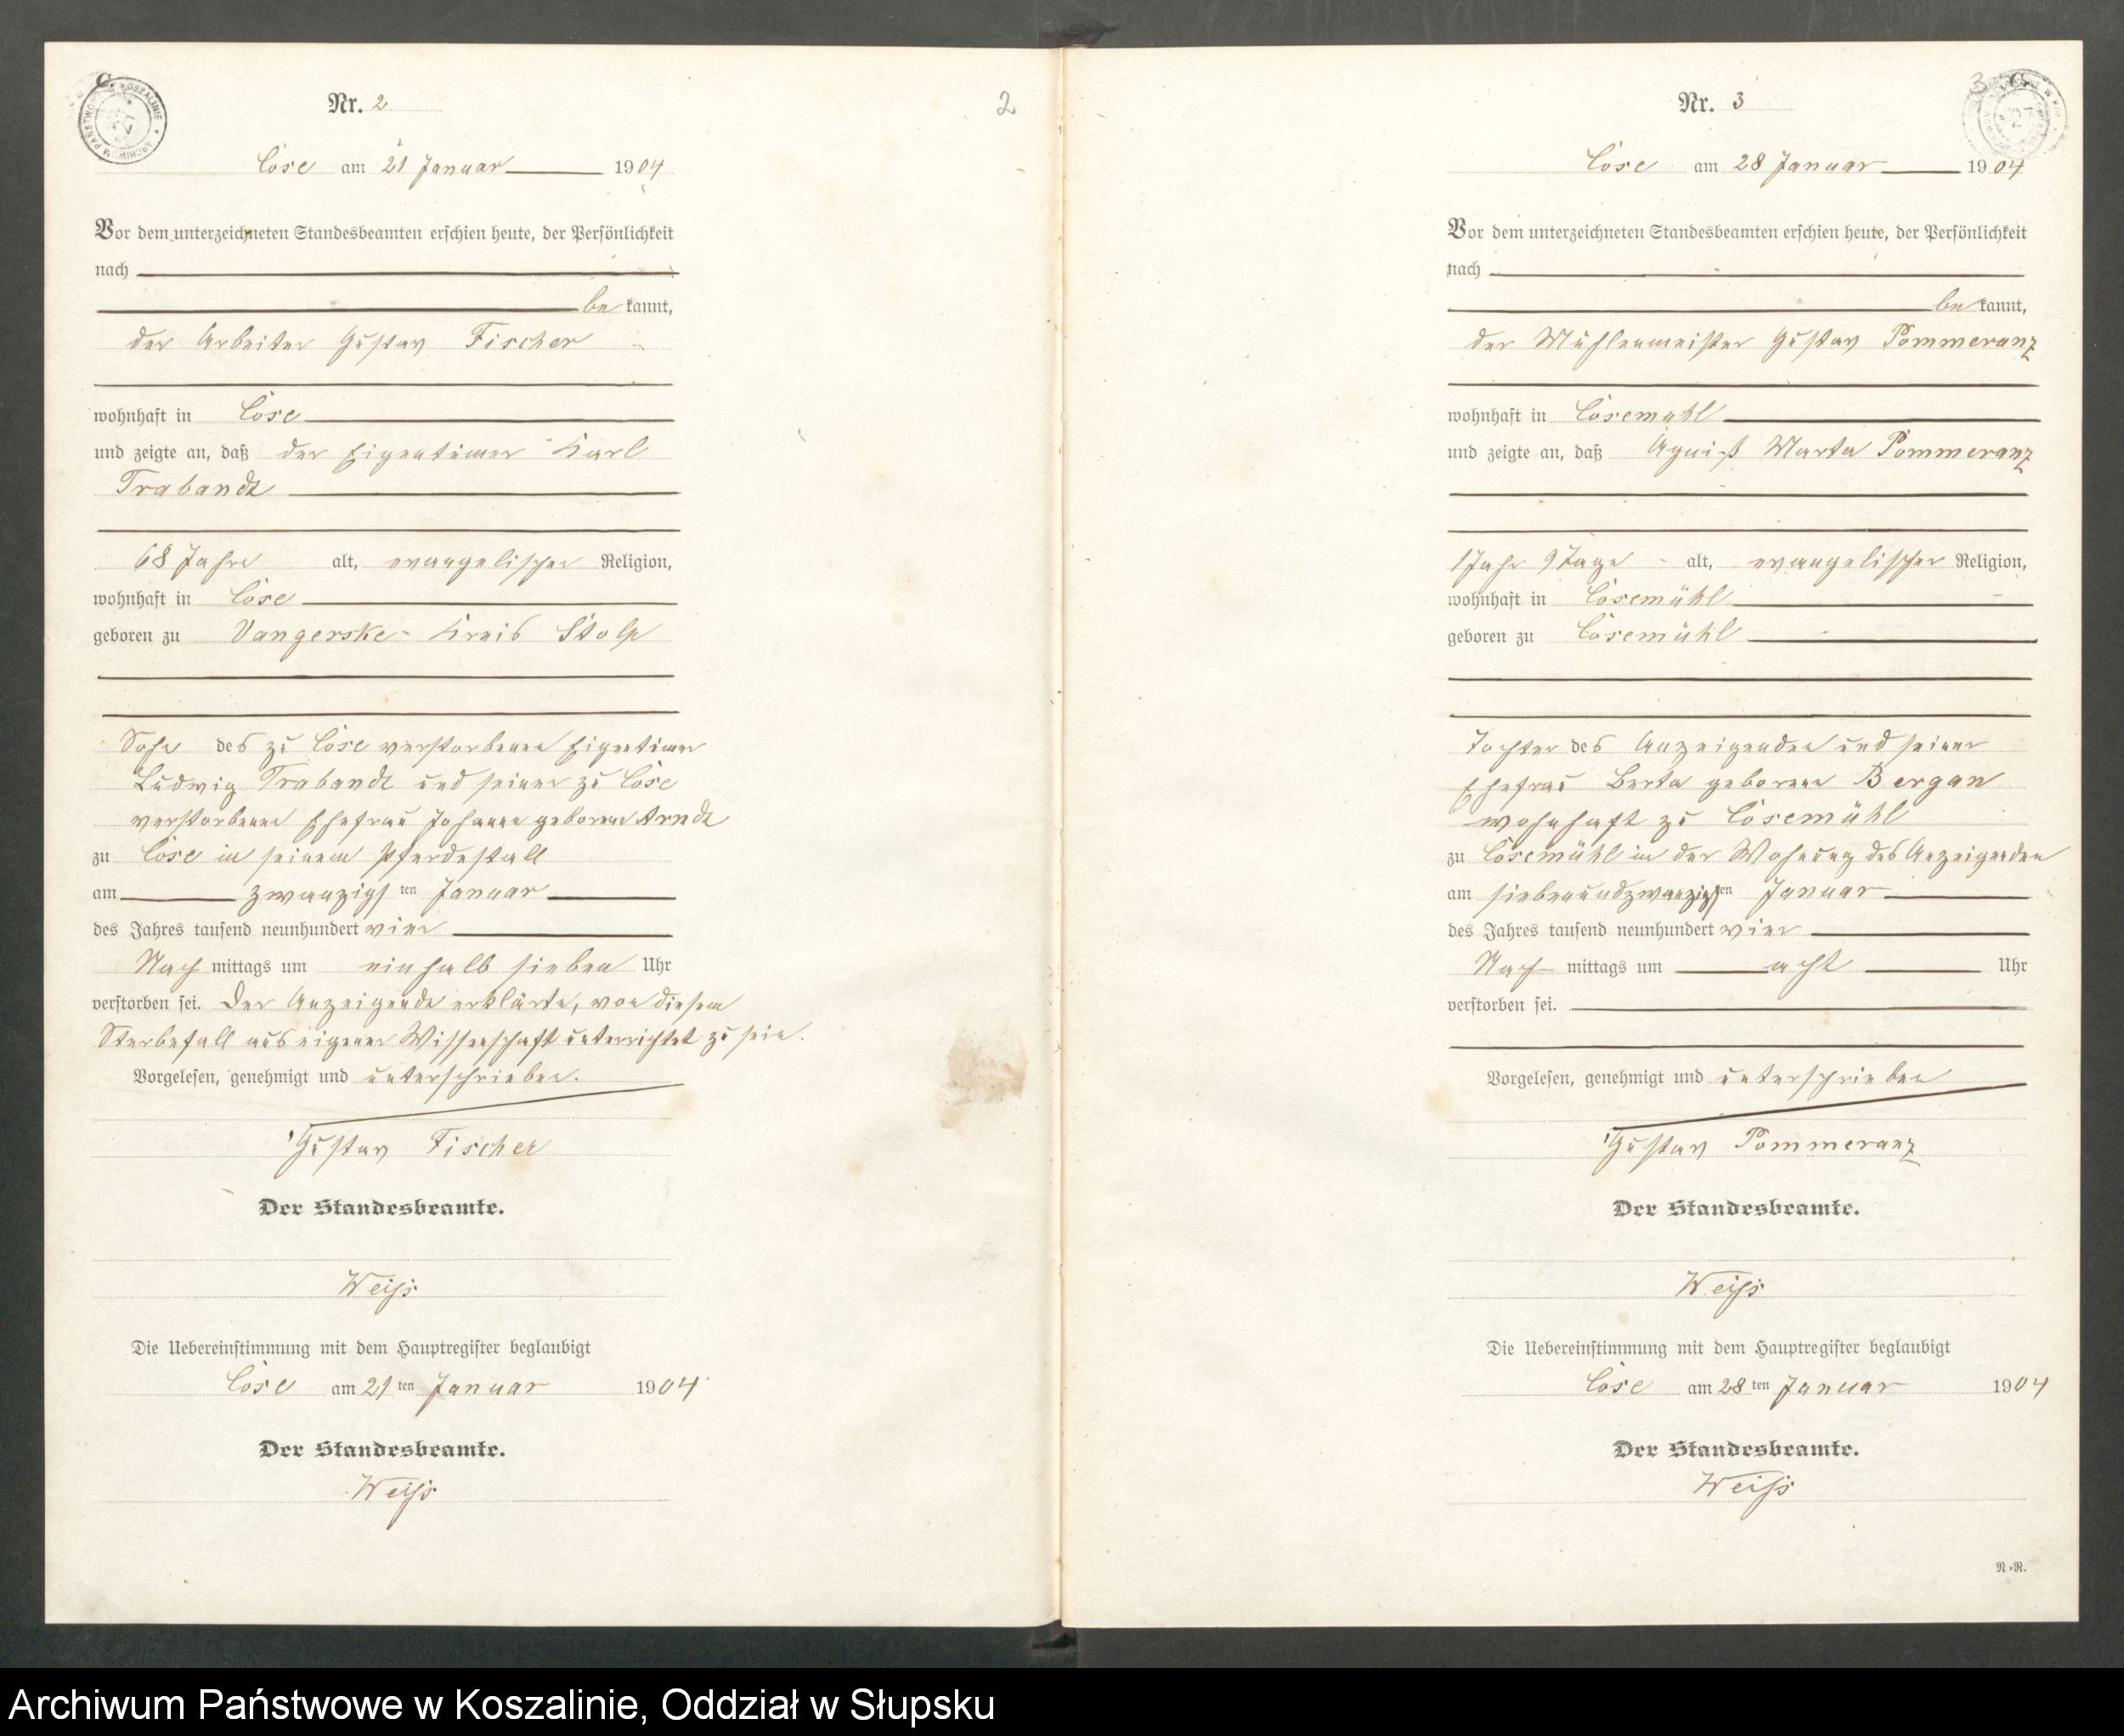 C.
ARCHIWUM PAŃSTWOWE W KOSZALINIE
27
Nr. 2
2
Cose am 21 Januar 1904
Vor dem unterzeichneten Standesbeamten erschien heute, der Persönlichkeit
nach
be kannt,
der Arbeiter Gustav Fischer
wohnhaft in Cose
und zeigte an, daß der Eigentümer Karl
Trabandt
68 Jahre alt, evangelischer Religion,
wohnhaft in Cose
geboren zu Vangerske - Kreis Stolp
Sohn des zu Cose verstorbenen Eigentümer
Ludwig Trabandt und seiner zu Cose
verstorbenen Ehefrau Johanna geborene Arndt
zu Cose in seinem Pferdestall
am zwanzigsten Januar
des Jahres tausend neunhundert vier
Nach mittags um einhalb sieben Uhr
verstorben sei. Der Anzeigende erklärte, von diesem
Sterbefall aus eigener Wissenschaft unterrichtet zu sein.
Vorgelesen, genehmigt und unterschrieben.
Gustav Fischer
Der Standesbeamte.
Weiß
Die Uebereinstimmung mit dem Hauptregister beglaubigt
Cose am 21ten Januar 1904
Der Standesbeamte.
Weiß
3 C.
Nr. 3
Cose am 28 Januar 1904
Vor dem unterzeichneten Standesbeamten erschien heute, der Persönlichkeit
nach
be kannt,
der Mühlenmeister Gustav Pommeranz
wohnhaft in Cosemühl
und zeigte an, daß Agneiß Marta Pommeranz
1 Jahr 9 Tage alt, evangelischer Religion,
wohnhaft in Cosemühl
geboren zu Cosemühl
Tochter des Anzeigenden und seiner
Ehefrau Berta geborene Bergan
wohnhaft zu Cosemühl
zu Cosemühl in der Wohnung des Anzeigenden
am siebenundzwanzigsten Januar
des Jahres tausend neunhundert vier
Nach mittags um acht Uhr
verstorben sei.
Vorgelesen, genehmigt und unterschrieben
Gustav Pommeranz
Der Standesbeamte.
Weiß
Die Uebereinstimmung mit dem Hauptregister beglaubigt
Cose am 28ten Januar 1904
Der Standesbeamte.
Weiß
N.R.
Archiwum Państwowe w Koszalinie, Oddział w Słupsku